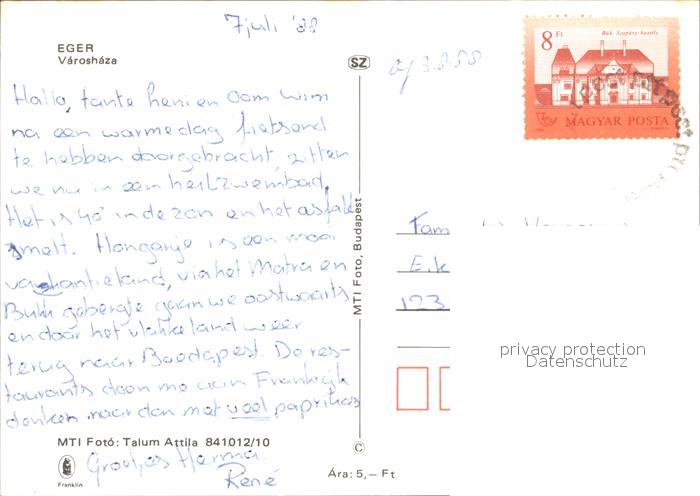 7 juli '88
EGER
Városháza
SZ
8 Ft
Bük. Szapáry-kastély
MAGYAR POSTA
Hallo, tante heni en oom wim
na een warme dag fietsend
te hebben doorgebracht, zitten
we nu in een heilzwembad.
Het is 40° in de zon en het asfalt
smelt. Hongarije is een mooi
vakantieland, via het Matra en
Bukk gebergte gaan we oostwaarts
en door het vlakke land weer
terug naar Boedapest. De res-
taurants doen me aan Frankrijk
denken, maar dan met veel paprikas
Groetjes Herma
René
MTI Fotó: Talum Attila 841012/10
Franklin
Ára: 5,– Ft
MTI Foto, Budapest
©
Fam
E.k
123
privacy protection
Datenschutz